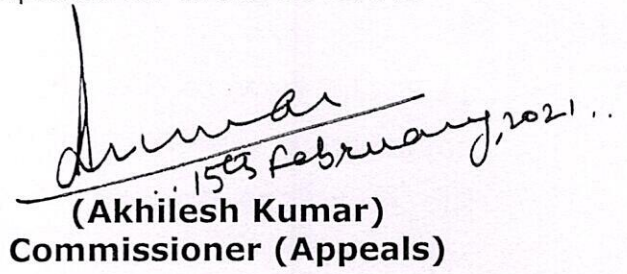 15th February, 2021..
(Akhilesh Kumar)
Commissioner (Appeals)